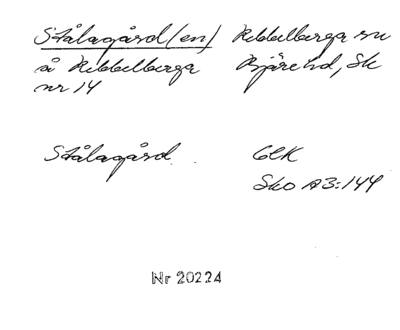 Stålagård (en) Rebbelberga sn
å Rebbelberga Bjäre hd, Sk
nr 14
Stålagård. GEK
Sko A3:144
Nr 20224